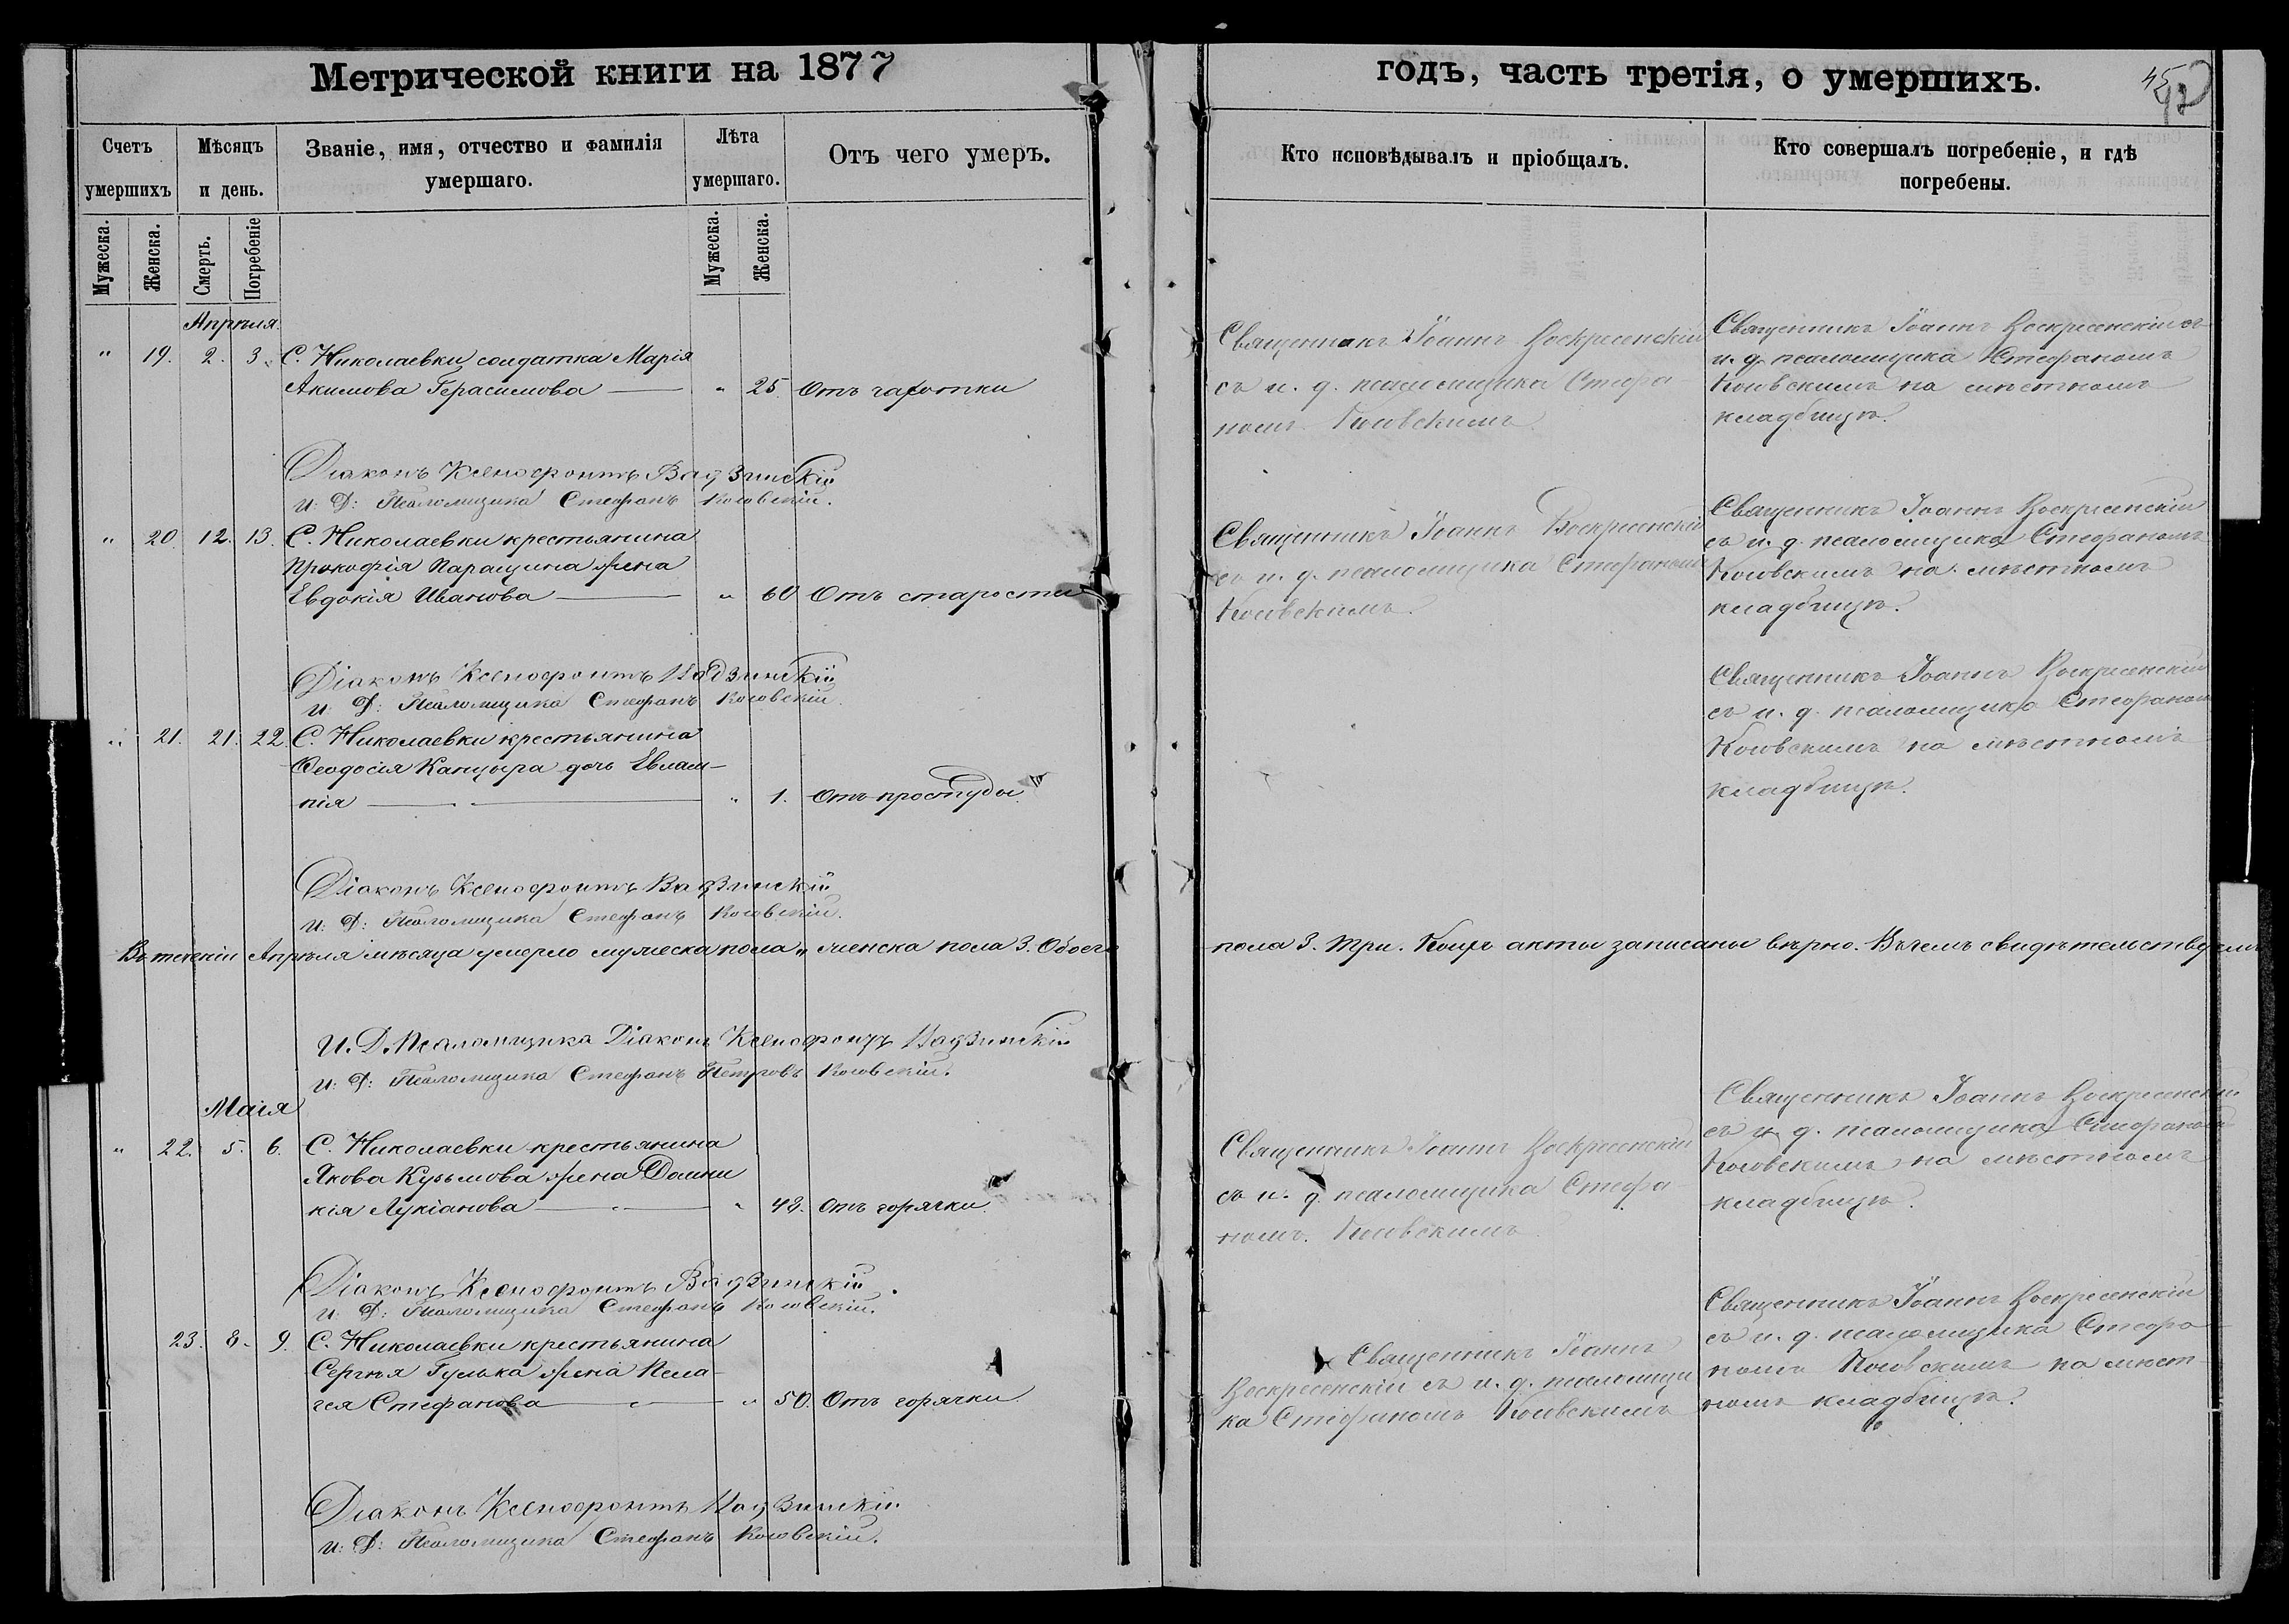 Метрической книги на 1877
годъ, часть третія, о умершихъ.
45
Счетъ умершихъ
Мѣсяцъ и день.
Званіе, имя, отчество и фамилія умершаго.
Лѣта умершаго.
Отъ чего умеръ.
Кто исповѣдывалъ и пріобщалъ.
Кто совершалъ погребеніе, и гдѣ погребены.
Мужеска.
Женска.
Смерть.
Погребеніе
Мужеска.
Женска.
Апрѣля.
" 19. 2. 3. С. Николаевки солдатка Марія
Акимова Герасимова — " 25. Отъ чахотки
Священникъ Іоаннъ Воскресенскій
съ и. д. псаломщика Стефа-
номъ Косовскимъ.
Священникъ Іоаннъ Воскресенскій съ
и. д. псаломщика Стефаномъ
Косовскимъ на мѣстномъ
кладбищѣ.
Діаконъ Ксенофонтъ Вадзинскій
И: Д: Псаломщика Стефанъ Косовскій.
" 20. 12. 13. С. Николаевки крестьянина
Прокофія Паращина жена
Евдокія Иванова — " 60 Отъ старости
Священникъ Іоаннъ Воскресенскій
съ и. д. псаломщика Стефаномъ
Косовскимъ.
Священникъ Іоаннъ Воскресенскій
съ и. д. псаломщика Стефаномъ
Косовскимъ на мѣстномъ
кладбищѣ.
Діаконъ Ксенофонтъ Вадзинскій
И: Д: Псаломщика Стефанъ Косовскій.
" 21. 21. 22. С. Николаевки крестьянина
Ѳеодосія Канцыра дочь Евлам-
пія — " 1. Отъ простуды.
Священникъ Іоаннъ Воскресенскій
съ и. д. псаломщика Стефаномъ
Косовскимъ на мѣстномъ
кладбищѣ.
Діаконъ Ксенофонтъ Вадзинскій
И: Д: Псаломщика Стефанъ Косовскій.
Въ теченіи Апрѣля мѣсяца умерло мужеска пола " женска пола 3. Обоего пола 3. Три. Коихъ акты записаны вѣрно. Въ чемъ свидѣтельствуемъ
И. Д. Псаломщика Діаконъ Ксенофонтъ Вадзинскій
И: Д: Псаломщика Стефанъ Петровъ Косовскій.
Маія
" 22. 5. 6. С. Николаевки крестьянина
Якова Кузьмова жена Домни
кія Лукіанова — " 48. Отъ горячки.
Священникъ Іоаннъ Воскресенскій
съ и. д. псаломщика Стефа-
номъ Косовскимъ
Священникъ Іоаннъ Воскресенскій
съ и. д. псаломщика Стефаномъ
Косовскимъ на мѣстномъ
кладбищѣ.
Діаконъ Ксенофонтъ Вадзинскій.
И: Д: Псаломщика Стефанъ Косовскій.
23. 8. 9. С. Николаевки крестьянина
Сергѣя Гулька жена Пела-
гея Стефанова — " 50. Отъ горячки
Священникъ Іоаннъ
Воскресенскій съ и. д. псаломщи
ка Стефаномъ Косовскимъ
Священникъ Іоаннъ Воскресенскій
съ и. д. псаломщика Стефа-
номъ Косовскимъ на мѣст-
номъ кладбищѣ.
Діаконъ Ксенофонтъ Вадзинскій
И: Д: Псаломщика Стефанъ Косовскій.